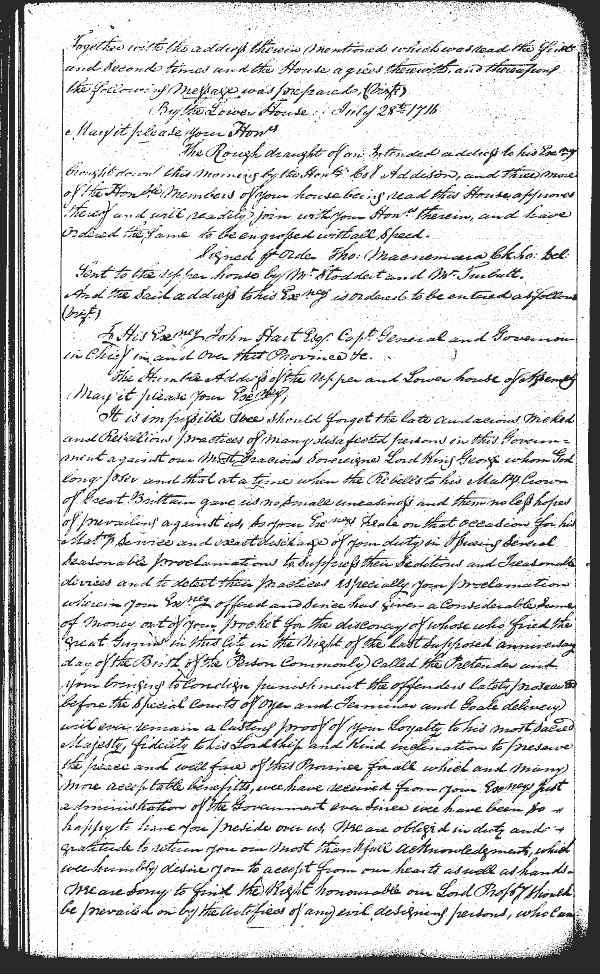 Together with the address therein mentioned which was read the first
and Second times and the House agrees therewith, and thereupon
the following Message was prepared, (Viz.t)
By the Lower House: July 28th 1716
May it please your Honrs
The Rough draught of an Intended address to his Exncy
brought down this morning by the Honble Col Addison, and three more
of the Honble Members of your house being read this House approves
thereof and will readily join with your Honrs therein, and have
ordered the same to be engrossed with all Speed.
Signed p Order Tho: Macnemara Clk ho: Del:
Sent to the upper house by Mr Stoddert and Mr Turbutt.
And the said address to his Exncy is ordered to be entered as follows
(Viz.t)
To His Exncy John Hart Esqr Capt General and Governour
in Chief in and Over this Province &c.
The Humble Address of the Upper and Lower house of Assembly
May it please your Exncy,
It is impossible wee should forget the late audacious Wicked
and Rebellious practices of many disafected persons in this Govern=
ment against our Most Gracious Sovereigne Lord King George whom God
long preserv and that at a time when the Rebells to his Matys Crown
of Great Brittain gave us no small uneasiness and them no less hopes
of prevailing against us, so your Exncys Zeale on that occasion for his
Matys Service and exact discharge of your duty in Issuing Several
Seasonable proclamations to suppress their Seditious and Treasonable
divices and to detect their practices Especially your proclamation
wherein your Exncy offered and since has given a Considerable Sume
of Money out of your pocket for the discovery of those who fired the
great Gunns in this City in the Night of the last supposed anniversary
day of the Birth of the Person Commonly Called the Pretender and
your bringing to Condign punishment the offenders lately prosecuted
before the Special Courts of Oyer and Terminer and Goale delivery
will ever remain a lasting proof of your Loyalty to his most Sacred
Majesty, fidelity to his Lordship and Kind inclination to preserve
the peace and wellfare of this Province for all which and many
more acceptable benefits, wee have received from your Exncys just
administration of the Government ever Since wee have been so
happy to have you preside over us, Wee are obliged in duty and
gratitude to return you our most thankfull acknowledgments, which
wee humbly desire you to accept from our hearts as well as hands.
Wee are sorry to find the Right honourable our Lord Propry should
be prevailed on by the Artifices of any evil designing persons, who can